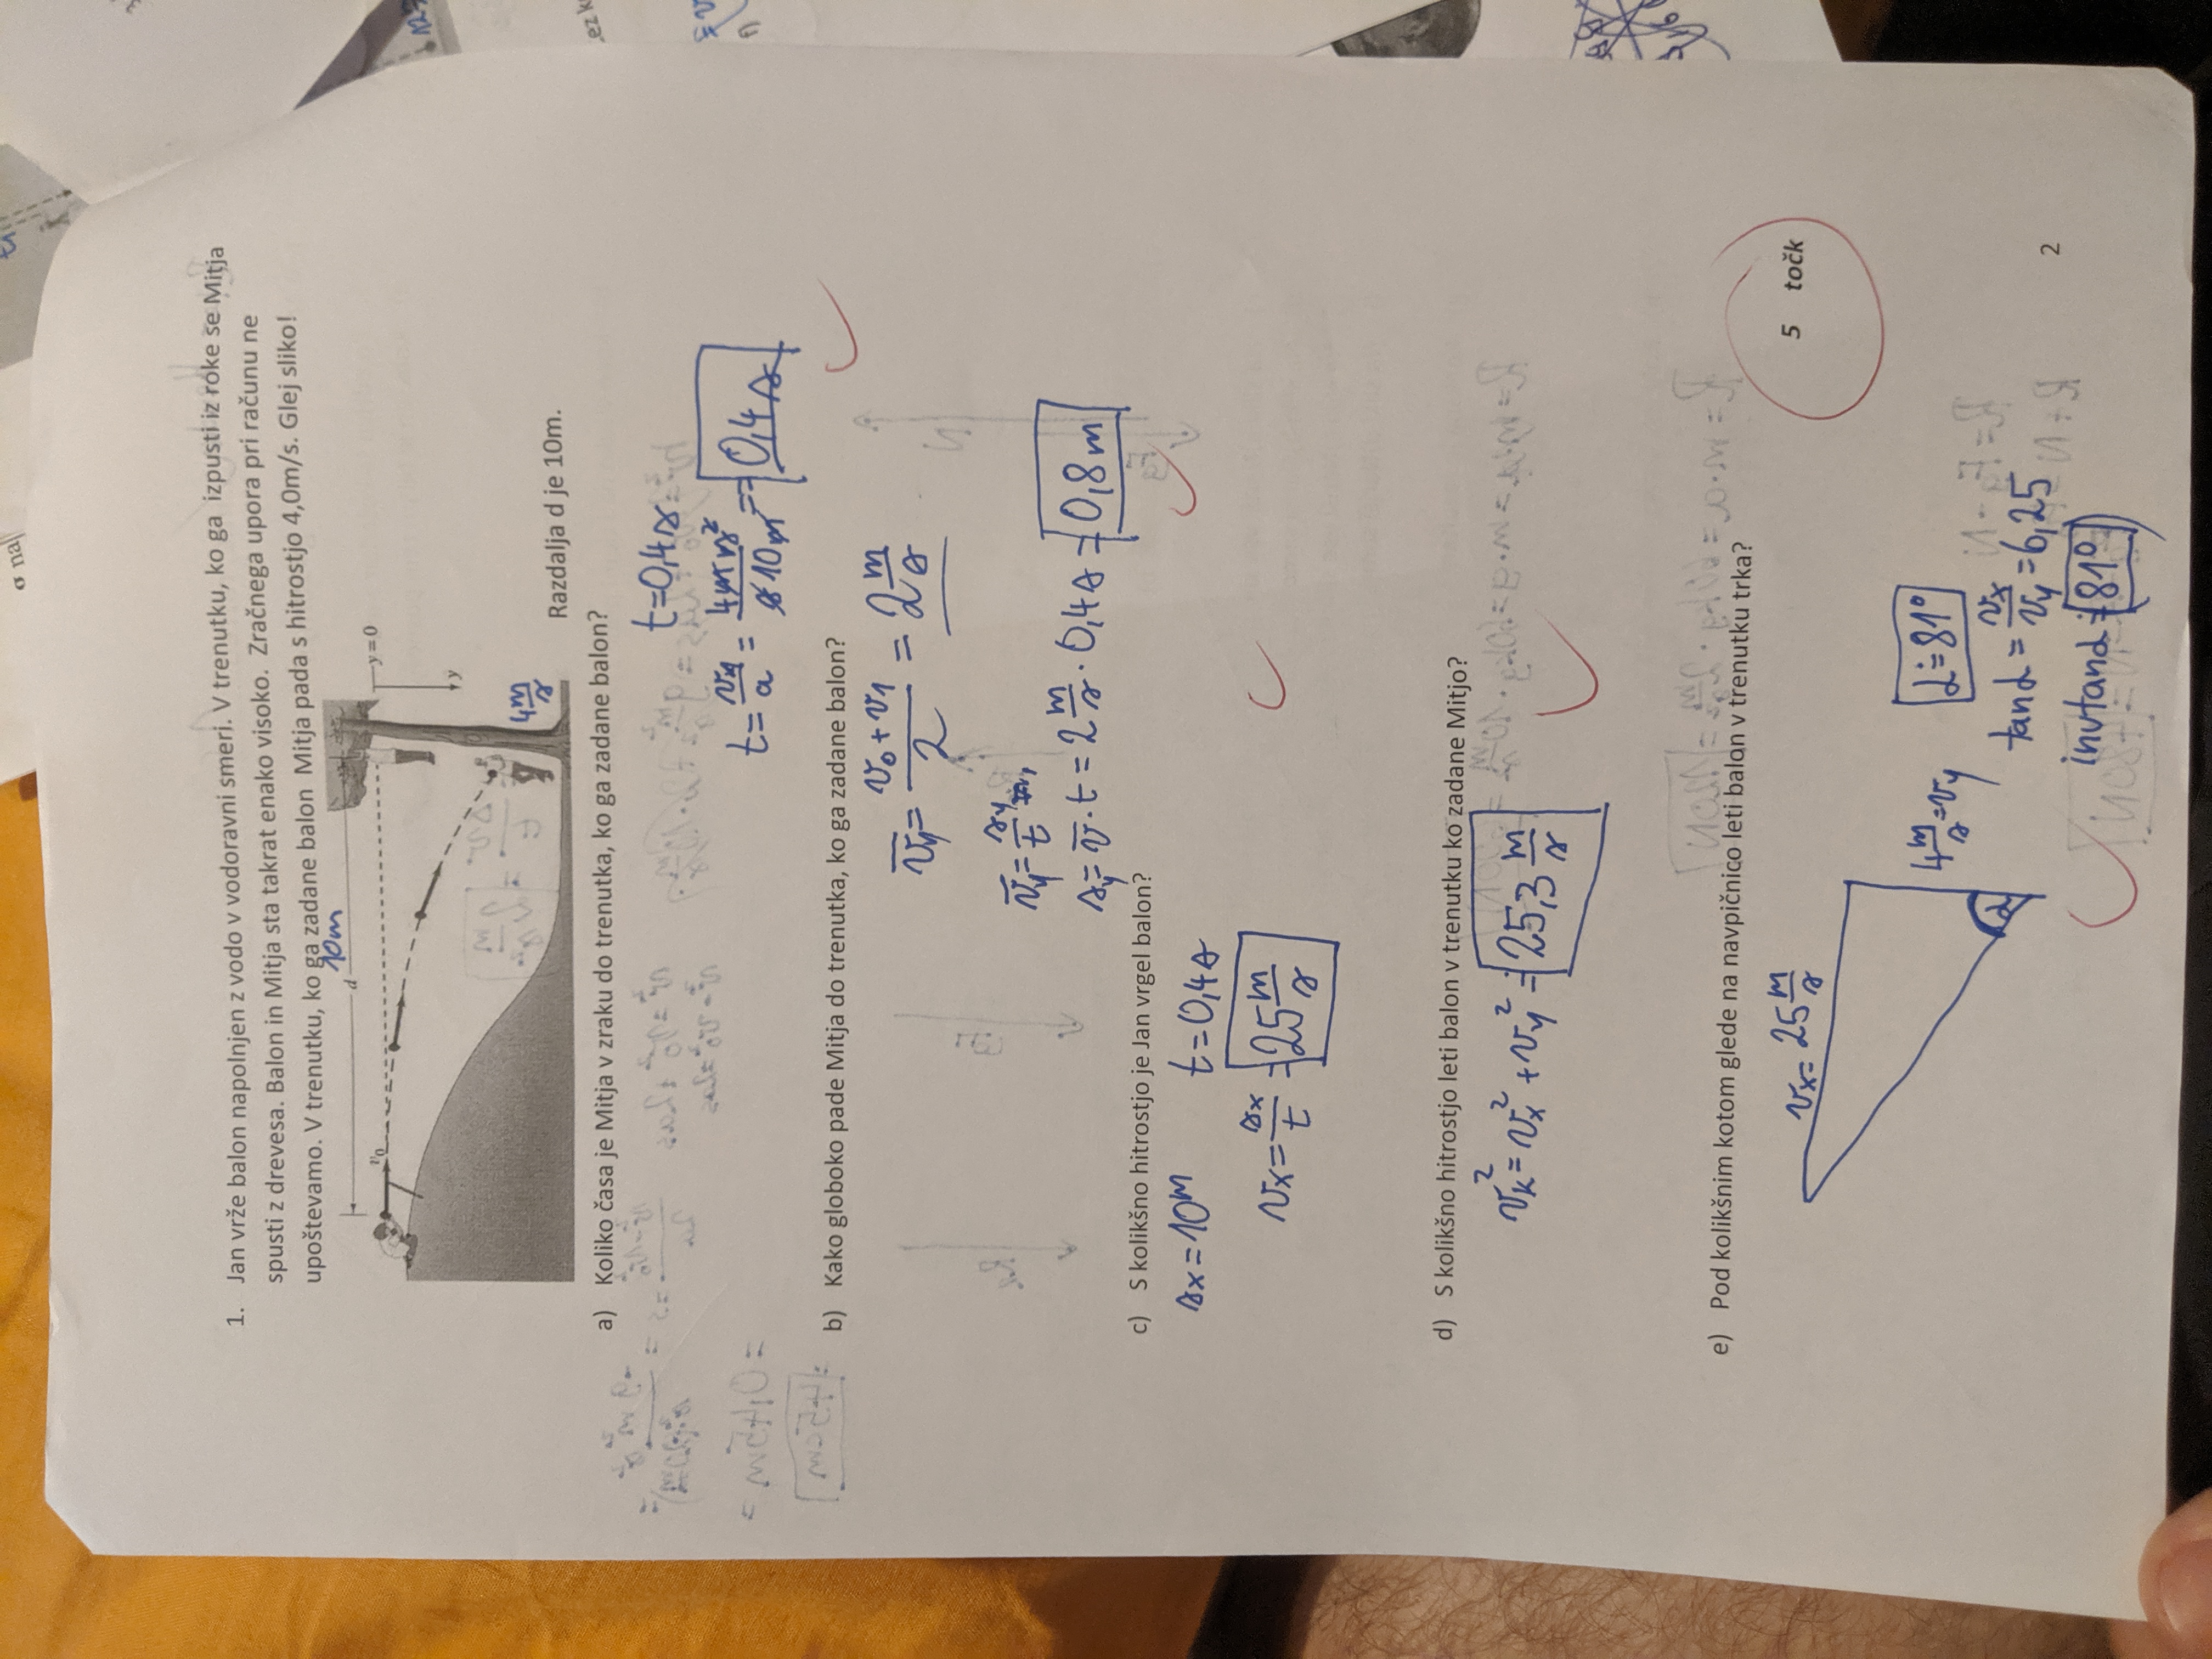 σ na
1. Jan vrže balon napolnjen z vodo v vodoravni smeri. V trenutku, ko ga izpusti iz roke se Mitja
spusti z drevesa. Balon in Mitja sta takrat enako visoko. Zračnega upora pri računu ne
upoštevamo. V trenutku, ko ga zadane balon Mitja pada s hitrostjo 4,0m/s. Glej sliko!
10m
d
v₀
y=0
y
4 m/s
Razdalja d je 10m.
a) Koliko časa je Mitja v zraku do trenutka, ko ga zadane balon?
t=0,4s
t = v₁/a = 4 m s²/s 10 m = 0,4 s
b) Kako globoko pade Mitja do trenutka, ko ga zadane balon?
v̄y = (v₀ + v₁)/2 = 2 m/s
v̄y = sy/t
sy = v̄ · t = 2 m/s · 0,4 s = 0,8 m
c) S kolikšno hitrostjo je Jan vrgel balon?
sx = 10m t = 0,4 s
vx = sx/t = 25 m/s
d) S kolikšno hitrostjo leti balon v trenutku ko zadane Mitjo?
vk² = vx² + vy² = 25,3 m/s
e) Pod kolikšnim kotom glede na navpičnico leti balon v trenutku trka?
5 točk
vx = 25 m/s
4 m/s = vy
α
α ≐ 81°
tan α = vx/vy = 6,25
invtan α ≐ 81°
2